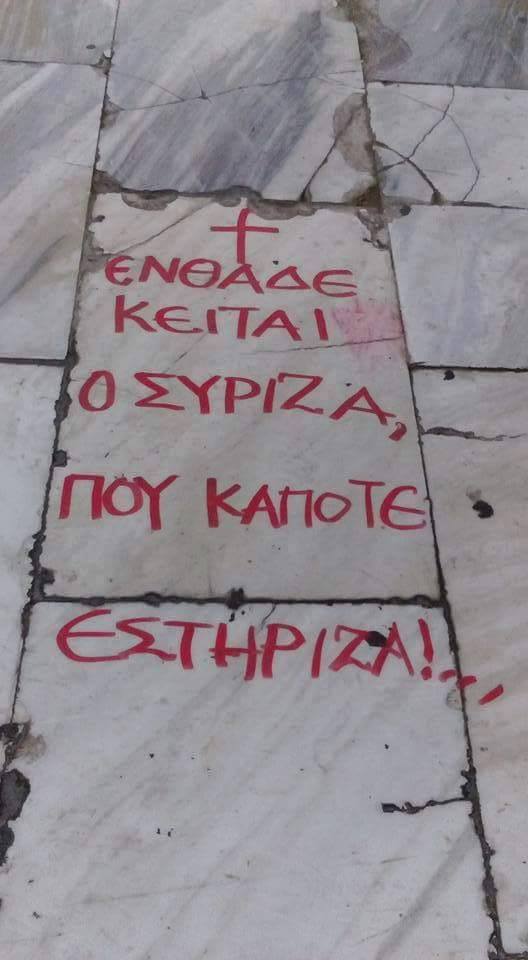 ΕΝΘΑΔΕ
ΚΕΙΤΑΙ
Ο ΣΥΡΙΖΑ,
ΠΟΥ ΚΑΠΟΤΕ
ΕΣΤΗΡΙΖΑ!...